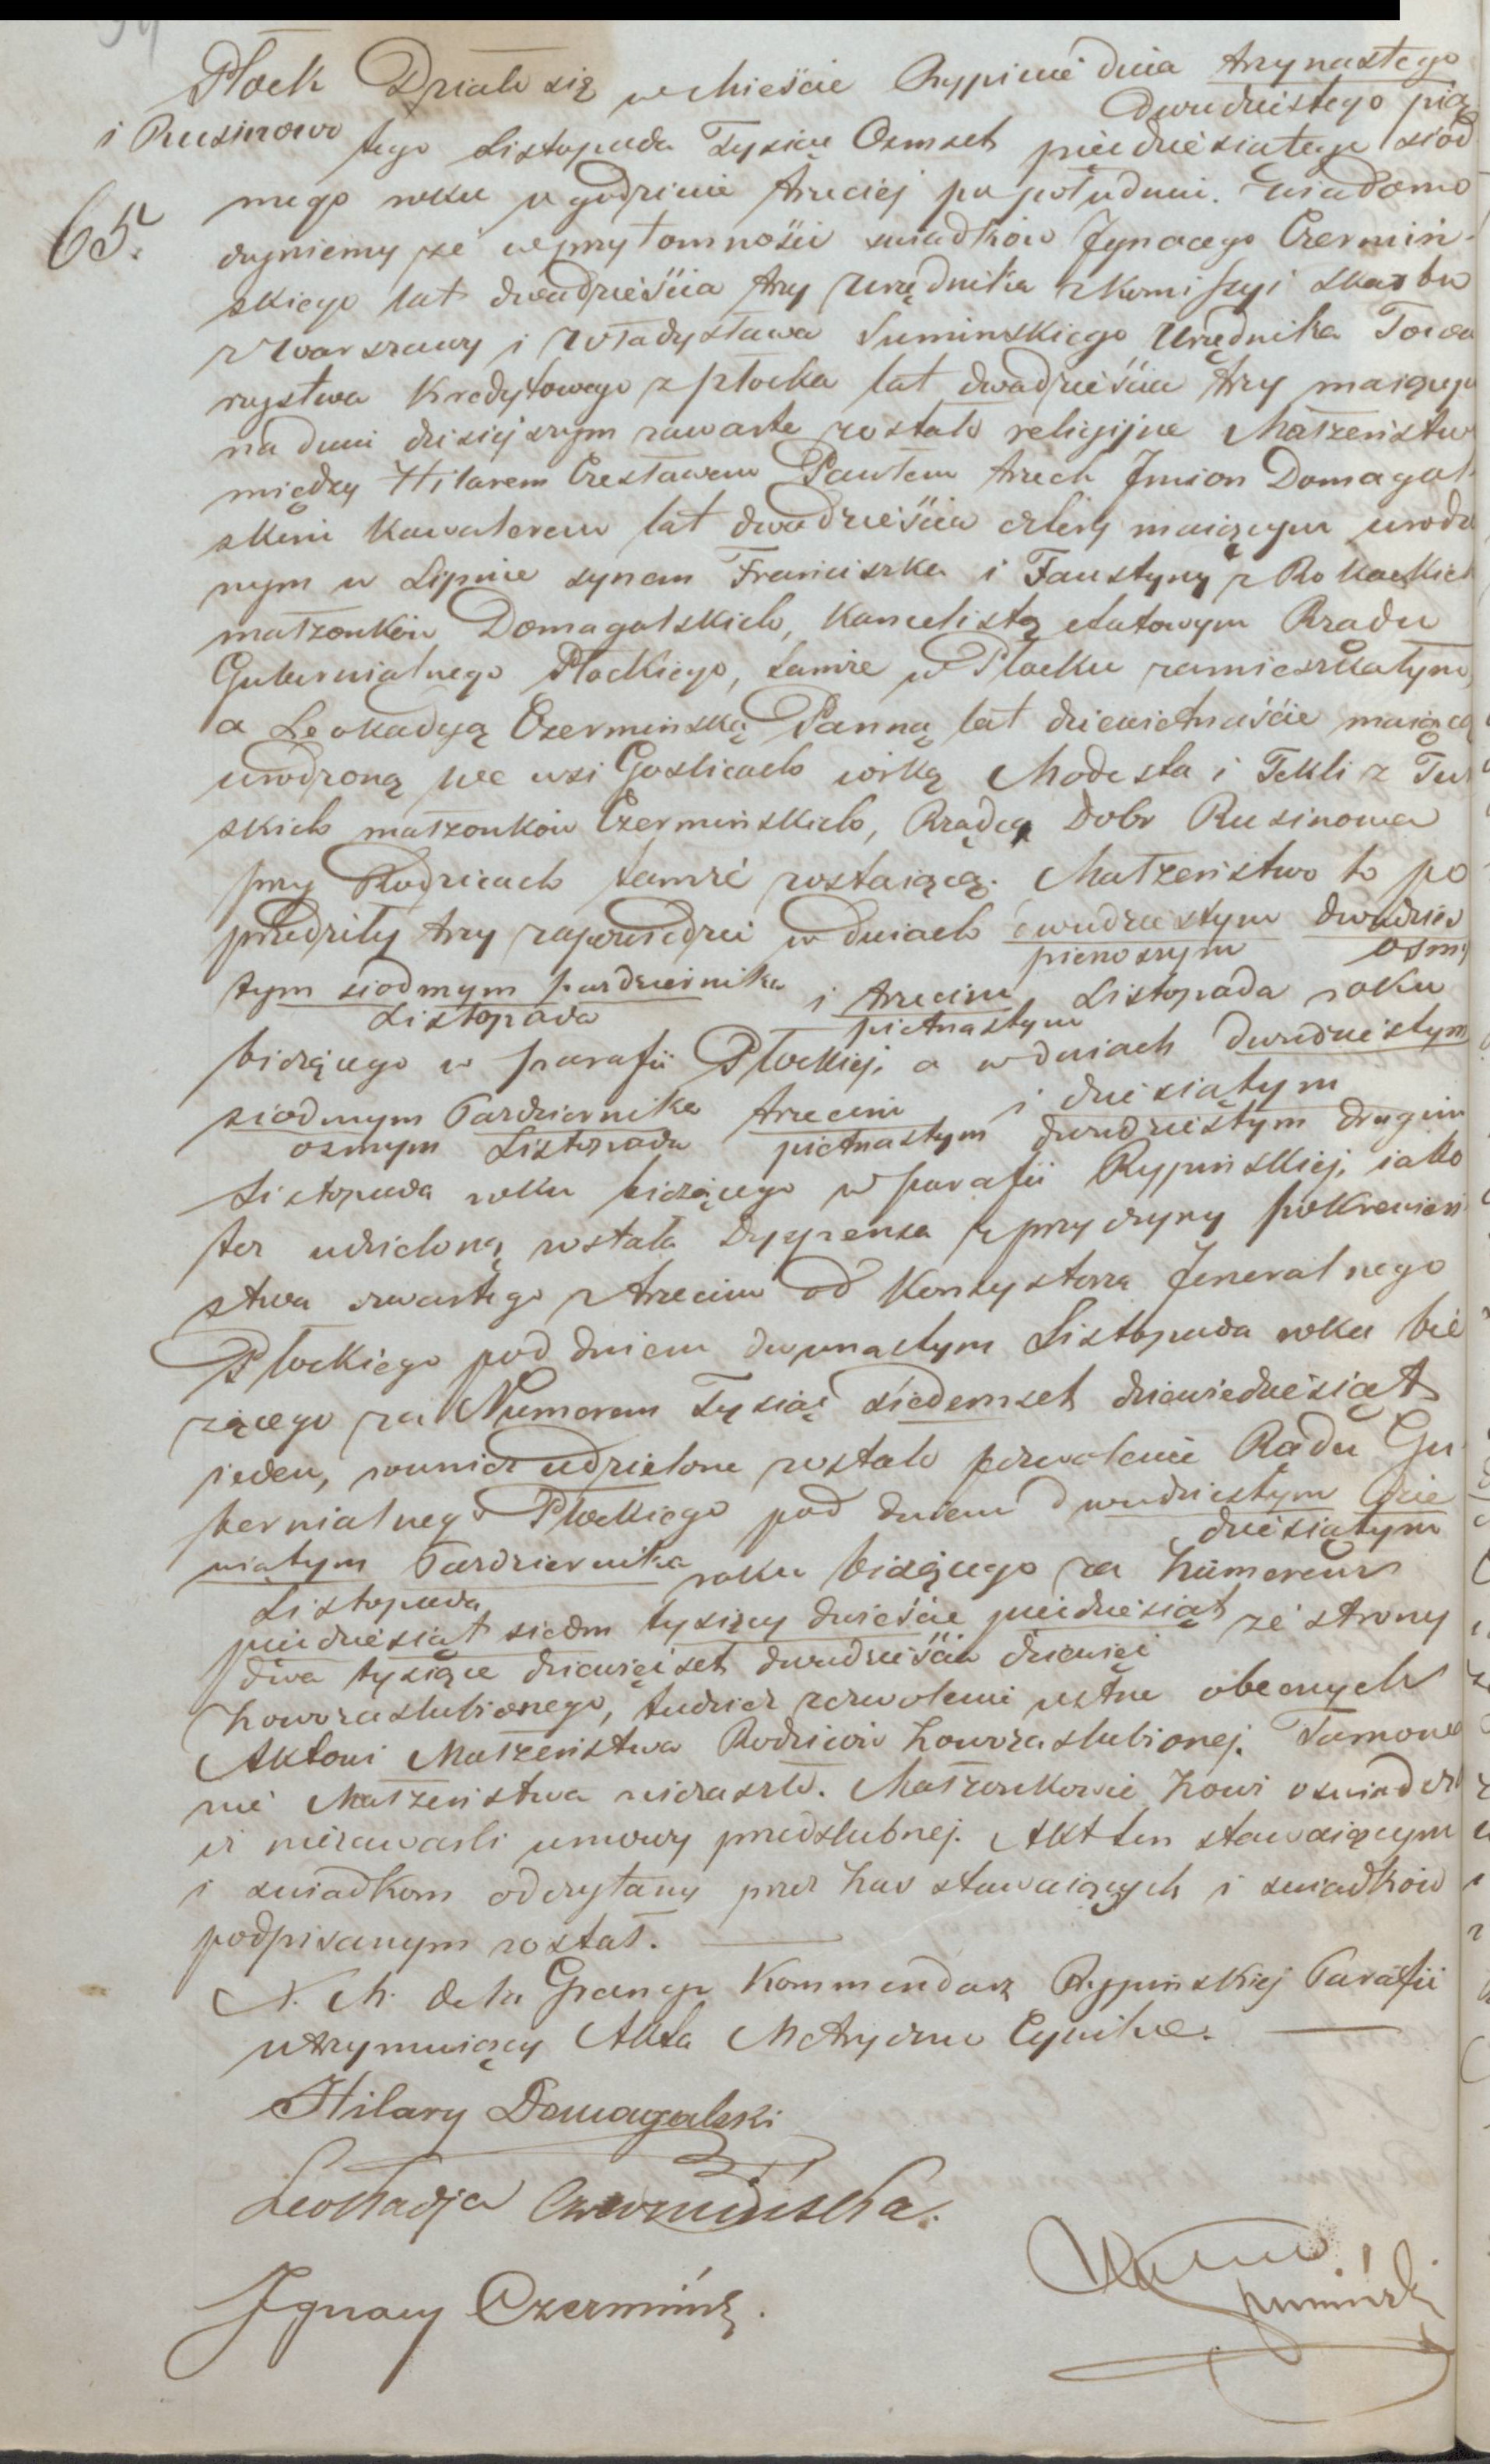 Płock Działo się w Mieście Rypinie dnia trzynastego
dwudziestego pią
i Rusinowo
tego Listopada Tysiąc Osmset pięćdziesiątego siód
65.
mego roku o godzinie trzeciej po południu. Wiadomo
czyniemy że w przytomności swiadków Jgnacego Czermiń-
skiego lat dwadzieścia trzy Urzędnika z Komissyi Skarbu
z Warszawy i Władysława Suminskiego Urzędnika Towa
rzystwa Kredytowego z Płocka lat dwadzieścia trzy maiącego
na dniu dzisiejszym zawarte zostało religijne Małżeństwo
między Hilarem Czesławem Pawłem trzech Jmion Domagal-
skim Kawalerem lat dwadzieścia cztery maiącym urodzo
nym w Lipnie synem Franciszka i Faustyny z Rokackich
małżonków Domagalskich, Kancelistą etatowym Rządu
Gubernialnego Płockiego, tamże w Płocku zamieszkałym,
a Leokadyą Czermińską Panną lat dziewietnaście maiącą
urodzoną we wsi Goslicach córką Modesta i Tekli z Tur
skich małżonków Czermińskich, Rządcą Dobr Rusinowa
przy Rodzicach tamże zostaiącą. Małżeństwo to po
przedziły trzy zapowiedzi w dniach dwudziestym dwudzies
pierwszym osmy
tym siodmym pazdziernika i trzecim Listopada roku
Listopada piętnastym
bieżącego w parafii Płockiej, a w dniach dwudziestym
siodmym Pazdziernika trzecim i dziesiątym
osmym Listopada piętnastym dwudziestym drugim
Listopada roku bieżącego w parafii Rypińskiej, iako
też udzieloną została dyspensa z przyczyny pokrewień
stwa czwartego z trzecim od Konsystorza Jeneralnego
Płockiego pod dniem dwunastym Listopada roku bie
żącego za Numerem Tysiąc siedemset dziewiedziesiąt
jeden, rownież udzielone zostało pozwolenie Rządu Gu
bernialnego Płockiego pod dniem dwudziestym dzie
dziesiątym
wiątym Pazdziernika roku bieżącego za Numerem
Listopada
pięćdziesiąt siedm tysięcy dwieście pięćdziesiąt ze strony
dwa tysiące dziewięćset dwadzieścia dziewięć
Nowozaslubionego, tudzież zezwolenie ustne obecnych
Aktowi Małżeństwa Rodziców Nowozaslubionej. Tamowa
nie Małżeństwa niezaszło. Małżonkowie Nowi oswiadczyli
iż niezawarli umowy przedslubnej. Akt ten stawaiącym
i swiadkom odczytany przez Nas stawaiących i swiadków
podpisanym został.
X. M. de la Grange Kommendarz Rypińskiej Parafii
utrzymuiący Akta Metryczne Cywilne.
Hilary Domagalski
Leokadja Czermińska.
Jgnacy Czermińsk.
Sumiński